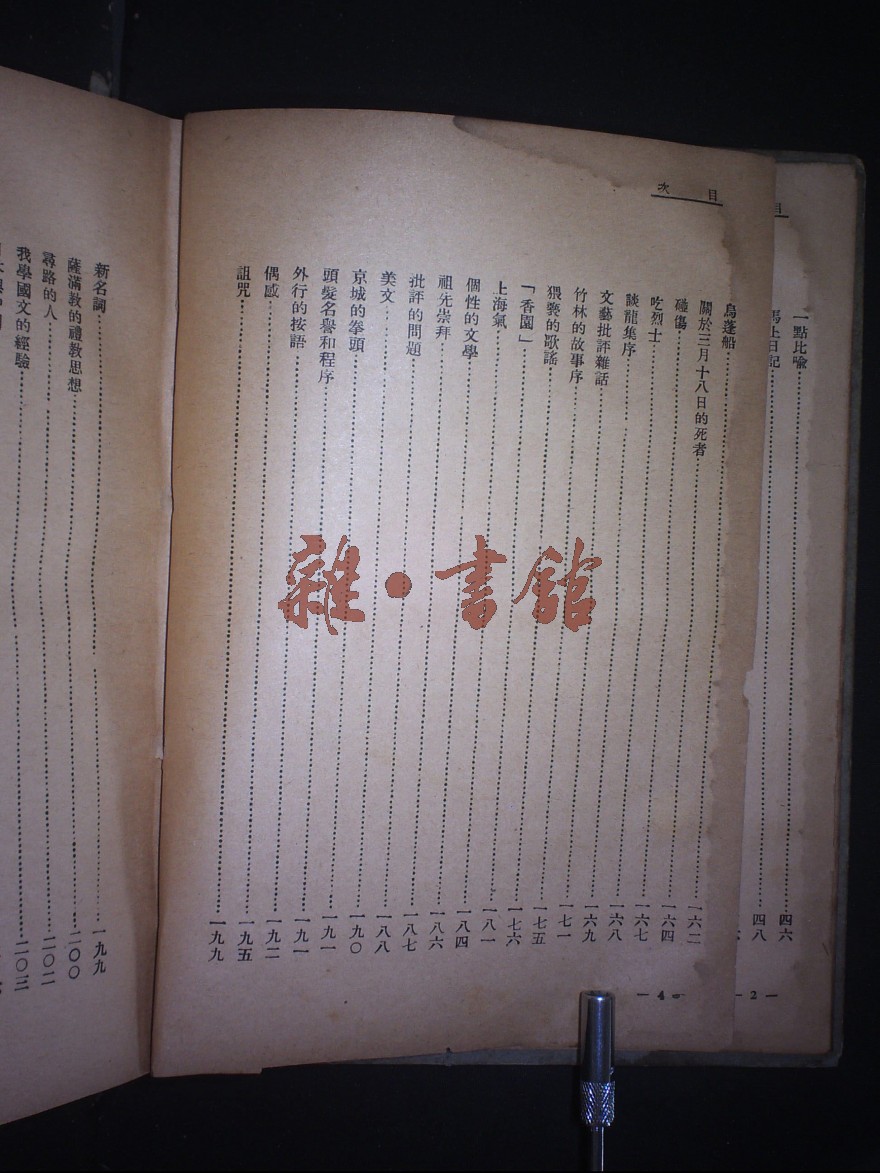 目
一點比喻……四六
馬上日記……四八
— 2 —
目次
烏蓬船……一六二
關於三月十八日的死者……一六四
碰傷……一六七
吃烈士……一六八
談龍集序……一六九
文藝批評雜話……一七一
竹林的故事序……一七五
猥褻的歌謠……一七六
「香園」……一八一
上海氣……一八四
個性的文學……一八六
祖先崇拜……一八七
批評的問題……一八八
美文……一九〇
京城的拳頭……一九一
頭髮名譽和程序……一九一
外行的按語……一九二
偶感……一九五
詛咒……一九九
— 4 —
新名詞……一九九
薩滿教的禮教思想……二〇〇
尋路的人……二〇二
我學國文的經驗……二〇三
雜·書館